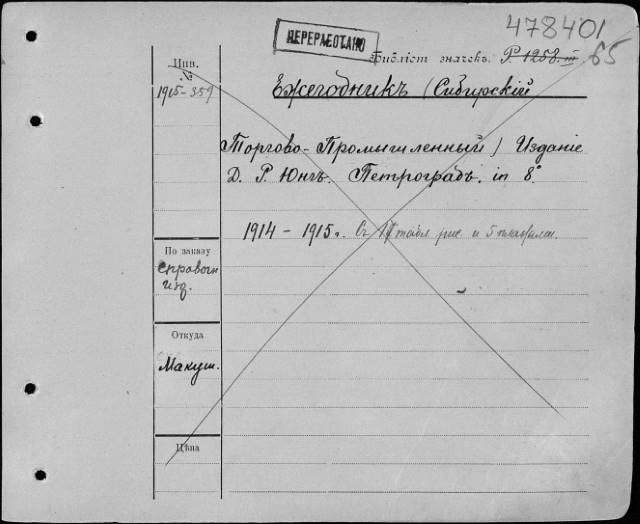 478401
ПЕРЕРАБОТАНО
Библіст значекъ. Р 1258 III 65
Инв.
№
1915-357
Ежегодникъ (Сибирскій
Торгово-Промышленный) Изданіе
Д. Р. Юнгъ. Петроградъ. in 8°
1914 - 1915г. Съ табл рис. и 5 планами.
По заказу
Справочн
изд.
Откуда
Макуш.
Цѣна